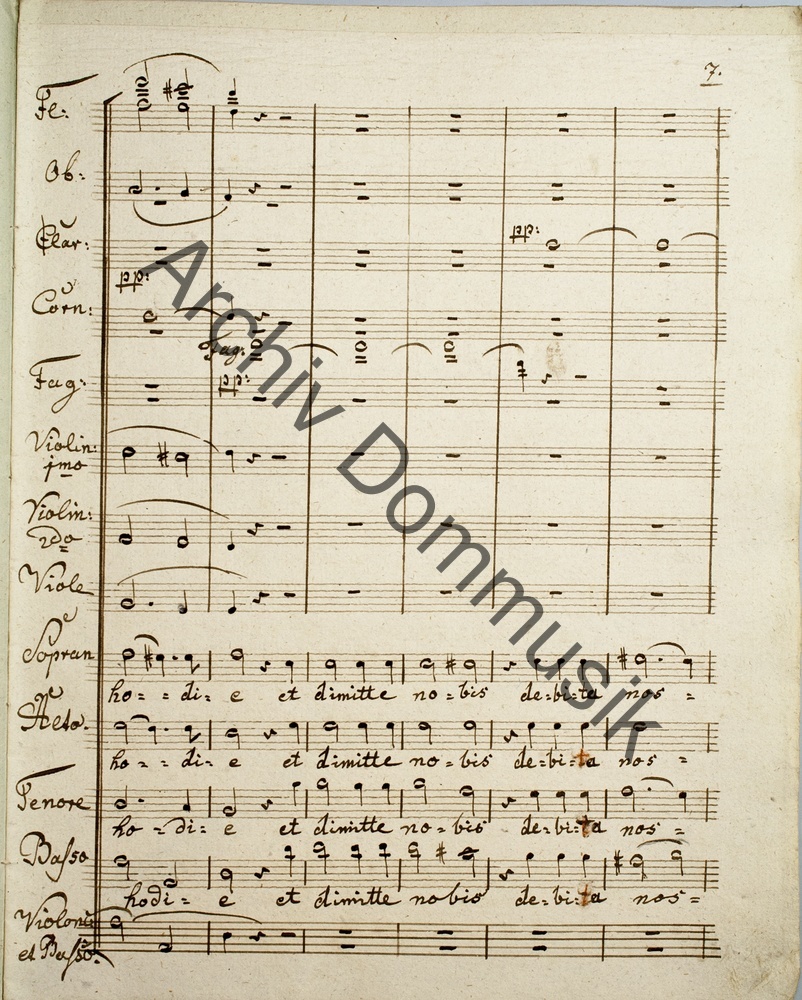 7.
Fl:
Ob:
Clar:
pp:
pp:
Corn:
Fag:
Fag:
pp:
Violin:
1mo
Violin:
2do
Viole
Sopran
ho= = di= e et dimitte no=bis de=bi=ta nos =
Alto.
ho= = di= e et dimitte no=bis de=bi=ta nos =
Tenore
ho =di= e et dimitte no=bis de=bi=ta nos =
Basso
hodi= e et dimitte nobis de=bi=ta nos=
et Basso.
Archiv Dommusik